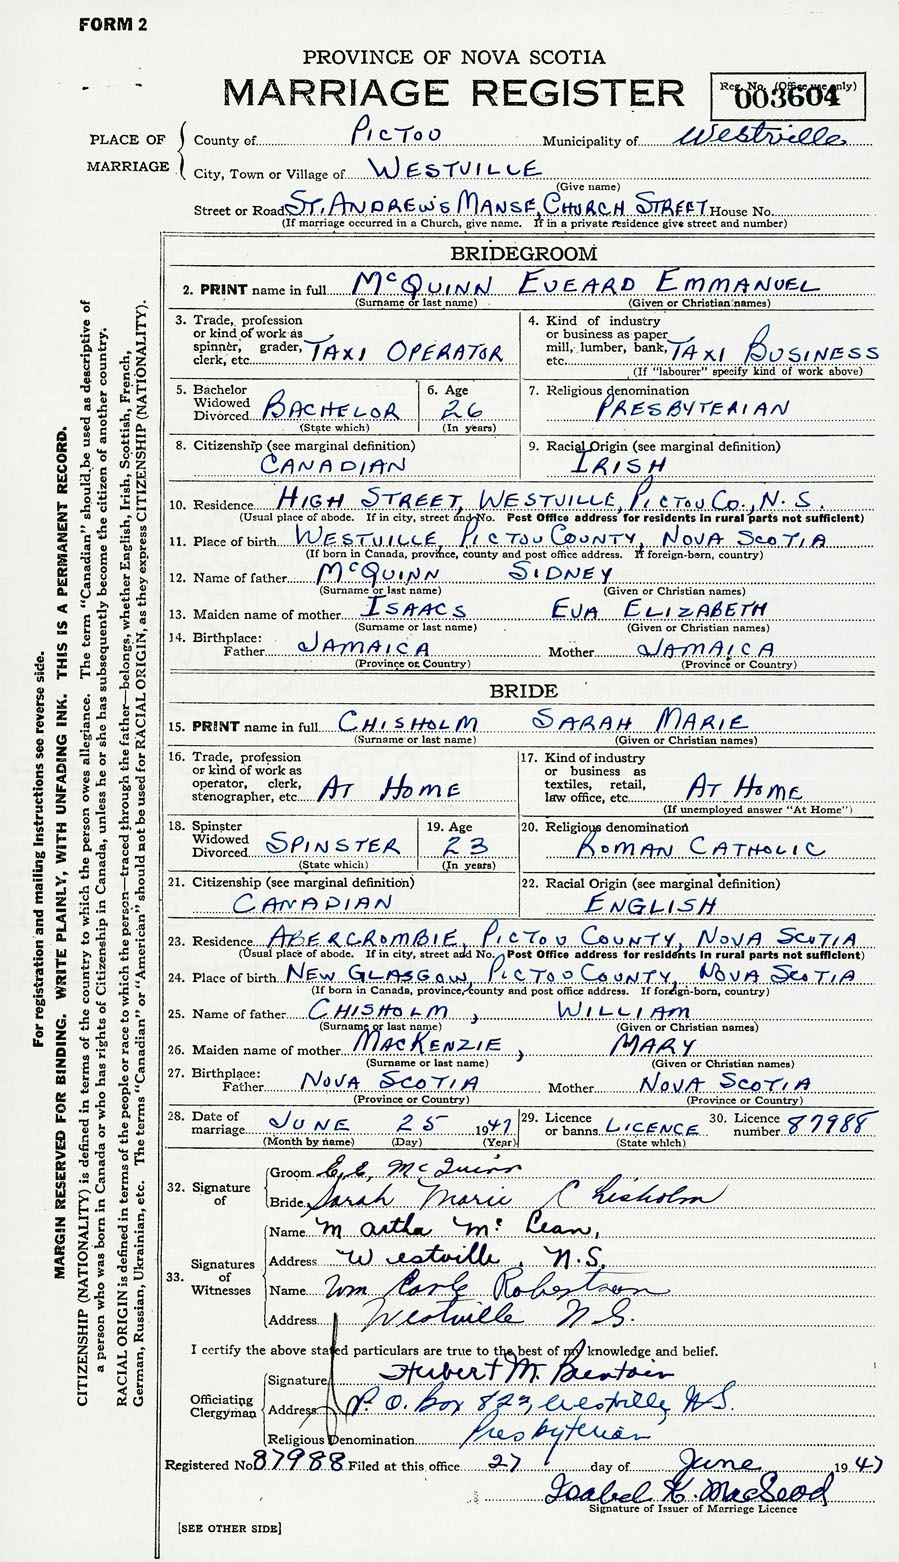 FORM 2
PROVINCE OF NOVA SCOTIA
MARRIAGE REGISTER
Reg. No. (Office use only)
003604
PLACE OF MARRIAGE
County of PICTOU Municipality of Westville
City, Town or Village of WESTVILLE
(Give name)
Street or Road ST. ANDREW'S MANSE, CHURCH STREET House No.
(If marriage occurred in a Church, give name. If in a private residence give street and number)
BRIDEGROOM
2. PRINT name in full McQUINN EVEARD EMMANUEL
(Surname or last name) (Given or Christian names)
3. Trade, profession or kind of work as spinner, grader, clerk, etc. TAXI OPERATOR
4. Kind of industry or business as paper mill, lumber, bank, etc. TAXI BUSINESS
(If "labourer" specify kind of work above)
5. Bachelor Widowed Divorced BACHELOR
(State which)
6. Age 26
(In years)
7. Religious denomination PRESBYTERIAN
8. Citizenship (see marginal definition) CANADIAN
9. Racial Origin (see marginal definition) IRISH
10. Residence HIGH STREET, WESTVILLE, PICTOU CO., N.S.
(Usual place of abode. If in city, street and No. Post Office address for residents in rural parts not sufficient)
11. Place of birth WESTVILLE, PICTOU COUNTY, NOVA SCOTIA
(If born in Canada, province, county and post office address. If foreign-born, country)
12. Name of father McQUINN SIDNEY
(Surname or last name) (Given or Christian names)
13. Maiden name of mother ISAACS EVA ELIZABETH
(Surname or last name) (Given or Christian names)
14. Birthplace:
Father JAMAICA Mother JAMAICA
(Province or Country) (Province or Country)
BRIDE
15. PRINT name in full CHISHOLM SARAH MARIE
(Surname or last name) (Given or Christian names)
16. Trade, profession or kind of work as operator, clerk, stenographer, etc. AT HOME
17. Kind of industry or business as textiles, retail, law office, etc. AT HOME
(If unemployed answer "At Home")
18. Spinster Widowed Divorced SPINSTER
(State which)
19. Age 23
(In years)
20. Religious denomination ROMAN CATHOLIC
21. Citizenship (see marginal definition) CANADIAN
22. Racial Origin (see marginal definition) ENGLISH
23. Residence ABERCROMBIE, PICTOU COUNTY, NOVA SCOTIA
(Usual place of abode. If in city, street and No. Post Office address for residents in rural parts not sufficient)
24. Place of birth NEW GLASGOW, PICTOU COUNTY, NOVA SCOTIA
(If born in Canada, province, county and post office address. If foreign-born, country)
25. Name of father CHISHOLM, WILLIAM
(Surname or last name) (Given or Christian names)
26. Maiden name of mother MACKENZIE, MARY
(Surname or last name) (Given or Christian names)
27. Birthplace:
Father NOVA SCOTIA Mother NOVA SCOTIA
(Province or Country) (Province or Country)
28. Date of marriage JUNE 25 1947
(Month by name) (Day) (Year)
29. Licence or banns LICENCE
(State which)
30. Licence number 87988
32. Signature of
Groom E. E. McQuinn
Bride Sarah Marie Chisholm
33. Signatures of Witnesses
Name Martha McLean,
Address Westville, N.S.
Name Wm Earle Robertson
Address Westville N.S.
I certify the above stated particulars are true to the best of my knowledge and belief.
Officiating Clergyman
Signature Hubert M.
Address P.O. Box 822, Westville, N.S.
Religious Denomination Presbyterian
Registered No. 87988 Filed at this office 27 day of June 1947
Isabel K. MacLeod
Signature of Issuer of Marriage Licence
[SEE OTHER SIDE]
For registration and mailing instructions see reverse side.
MARGIN RESERVED FOR BINDING. WRITE PLAINLY, WITH UNFADING INK. THIS IS A PERMANENT RECORD.
CITIZENSHIP (NATIONALITY) is defined in terms of the country to which the person owes allegiance. The term "Canadian" should be used as descriptive of
a person who was born in Canada or who has rights of Citizenship in Canada, unless he or she has subsequently become the citizen of another country.
RACIAL ORIGIN is defined in terms of the people or race to which the person—traced through the father—belongs, whether English, Irish, Scottish, French,
German, Russian, Ukrainian, etc. The terms "Canadian" or "American" should not be used for RACIAL ORIGIN, as they express CITIZENSHIP (NATIONALITY).